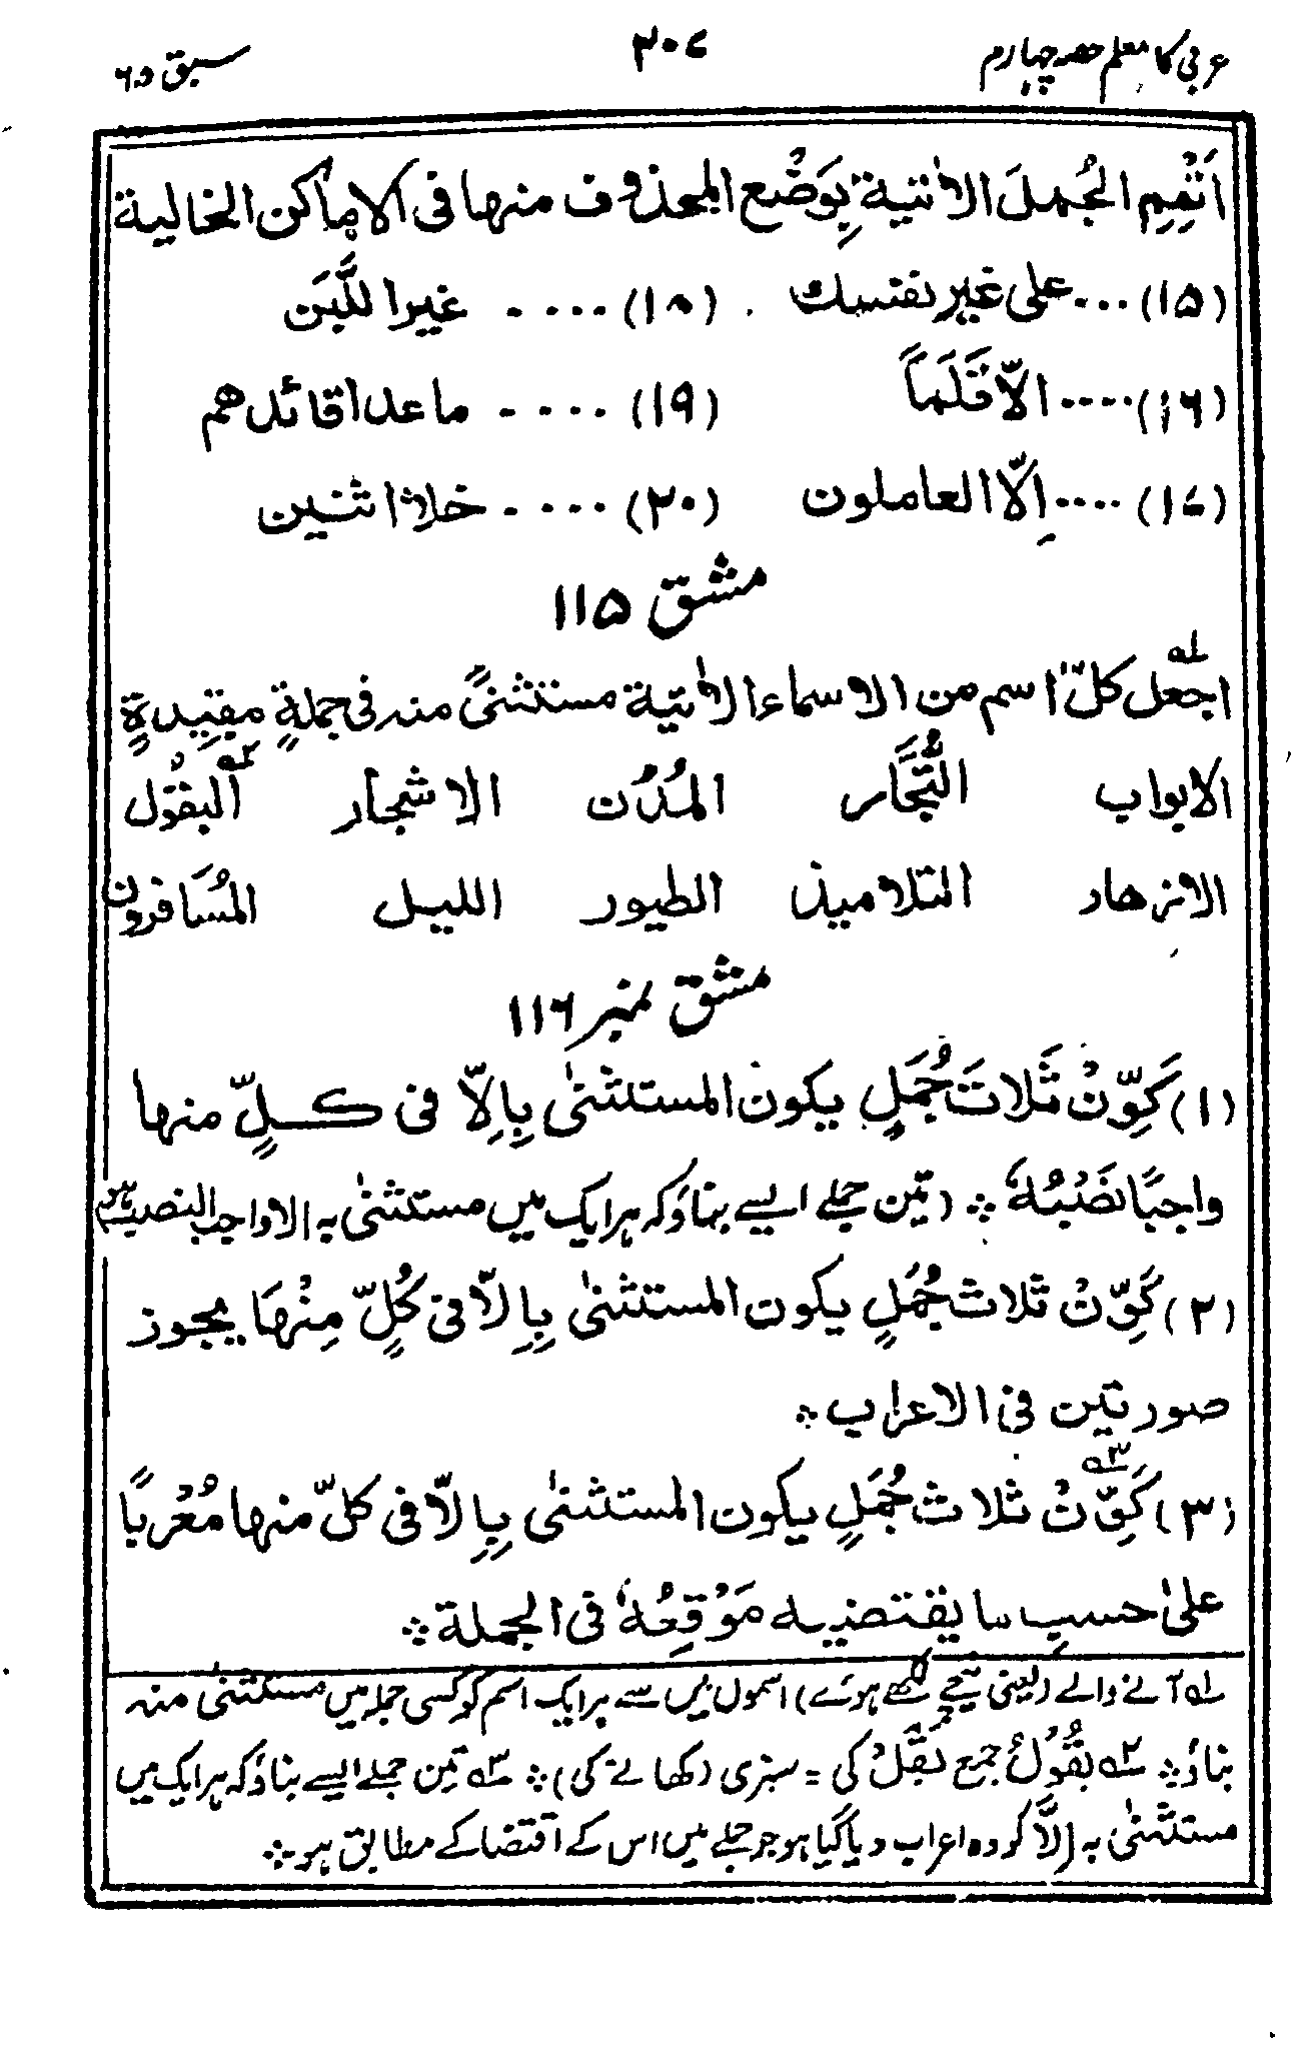 عربی کا معلم حصہ چہارم ۳۰۷ سبق ۶۵
اَتْمِمِ الجُملَ الاٰتیة بِوَضْعِ المحذوف منها فی الاماکن الخالیة
(۱۵) ... علی غیر نفسك (۱۸) .... غیر اللَّبَن
(۱۶) .... الاّ قَلَماً (۱۹) .... ما عدا قائدهم
(۱۷) .... اِلّا العاملون (۲۰) .... خلا اثنین
مشق ۱۱۵
اجعل۱؎ کلّ اسم من الاسماء الاٰتیة مستثنیً منه فی جملةٍ مفیدةٍ
الابواب التُّجَّار المُدُن الاشجار البقُوْل۲؎
الازهار التلامیذ الطیور اللیل المُسَافرون
مشق نمبر ۱۱۶
(۱) کَوِّنْ ثَلاثَ جُمَلٍ یکون المستثنیٰ بِاِلاّ فی کلٍّ منها
واجبًا نَصْبُهٗ ؞ (تین جملے ایسے بناؤ کہ ہر ایک میں مستثنیٰ بہ الا واجب النصب ہو)
(۲) کَوِّنْ ثلاث جُمَلٍ یکون المستثنیٰ بِالاّ فی کُلٍّ مِنْهَا یجوز
صورتین فی الاعراب ؞
(۳) کَوِّنْ۳؎ ثلاث جُمَلٍ یکون المستثنیٰ بِالاّ فی کلّ منها مُعْربًا
علیٰ حسبِ ما یقتضیه مَوْقِعُهٗ فی الجملة ؞
۱؎ آنے والے (یعنی نیچے لکھے ہوئے) اسموں میں سے ہر ایک اسم کو کسی جملہ میں مستثنیٰ منہ
بناؤ ؞ ۲؎ بقُوْلُ جمع بَقْلٌ کی = سبزی (کھانے کی) ؞ ۳؎ تین جملے ایسے بناؤ کہ ہر ایک میں
مستثنیٰ بہ اِلَّا کو وہ اعراب دیا گیا ہو جو جملے میں اس کے اقتضا کے مطابق ہو ؞